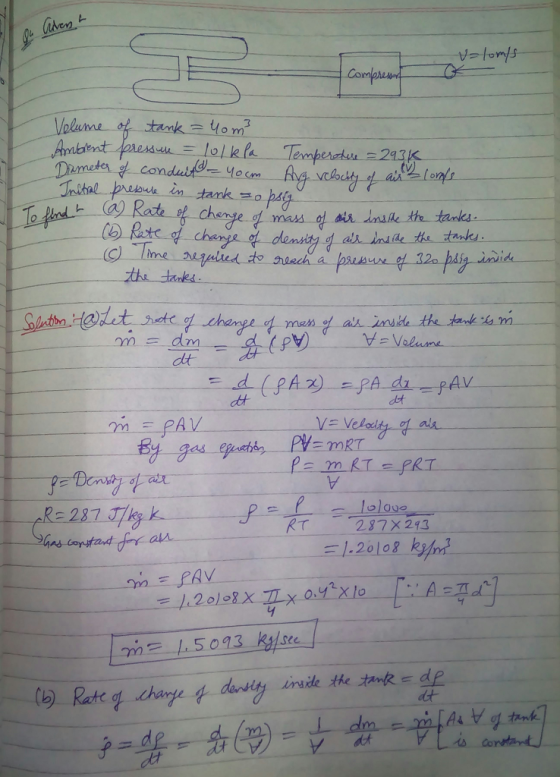 Q:- Given:-
Compressor
V=10m/s
Volume of tank = 40m³
Ambient pressure = 101 kPa Temperature = 293K
Diameter of conduit(d) = 40cm Avg velocity of air(V) = 10m/s
Initial pressure in tank = 0 psig
To find:- (a) Rate of change of mass of air inside the tanks.
(b) Rate of change of density of air inside the tanks.
(c) Time required to reach a pressure of 320 psig inside
the tanks.
Solution:- (a) Let rate of change of mass of air inside the tank is ṁ
ṁ = dm/dt = d/dt (ρV̶) V̶ = Volume
= d/dt (ρAx) = ρA dx/dt = ρAV
ṁ = ρAV V = Velocity of air
By gas equation, PV̶ = mRT
P = m/V̶ RT = ρRT
ρ = Density of air
R = 287 J/kg k ρ = P/RT = 101000/287×293
Gas constant for air = 1.20108 kg/m³
ṁ = ρAV
= 1.20108 × π/4 × 0.4² × 10 [∵ A = π/4 d²]
ṁ = 1.5093 kg/sec
(b) Rate of change of density inside the tank = dρ/dt
ρ̇ = dρ/dt = d/dt (m/V̶) = 1/V̶ dm/dt = ṁ/V̶ [As V̶ of tank is constant]